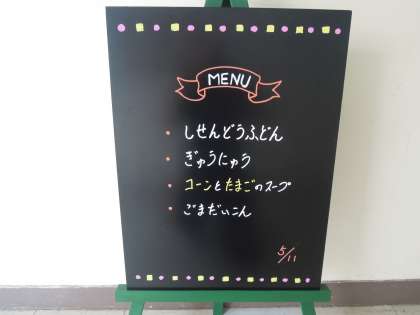 MENU
・しせんどうふどん
・ぎゅうにゅう
・コーンとたまごのスープ
・ごまだいこん
5/11